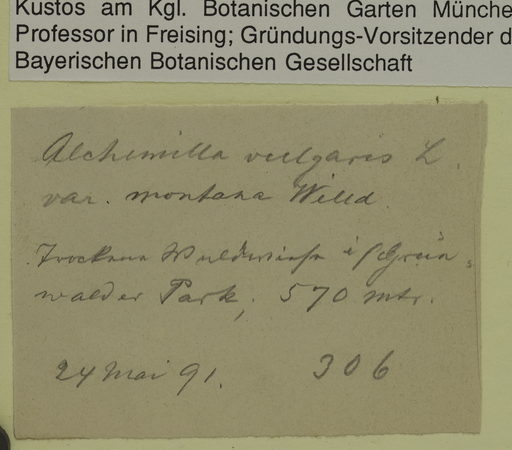 Kustos am Kgl. Botanischen Garten Münche
Professor in Freising; Gründungs-Vorsitzender d
Bayerischen Botanischen Gesellschaft
Alchemilla vulgaris L.
var. montana Willd.
Trockene Waldwiese i/Grün-
walder Park, 570 mtr.
24 Mai 91. 306